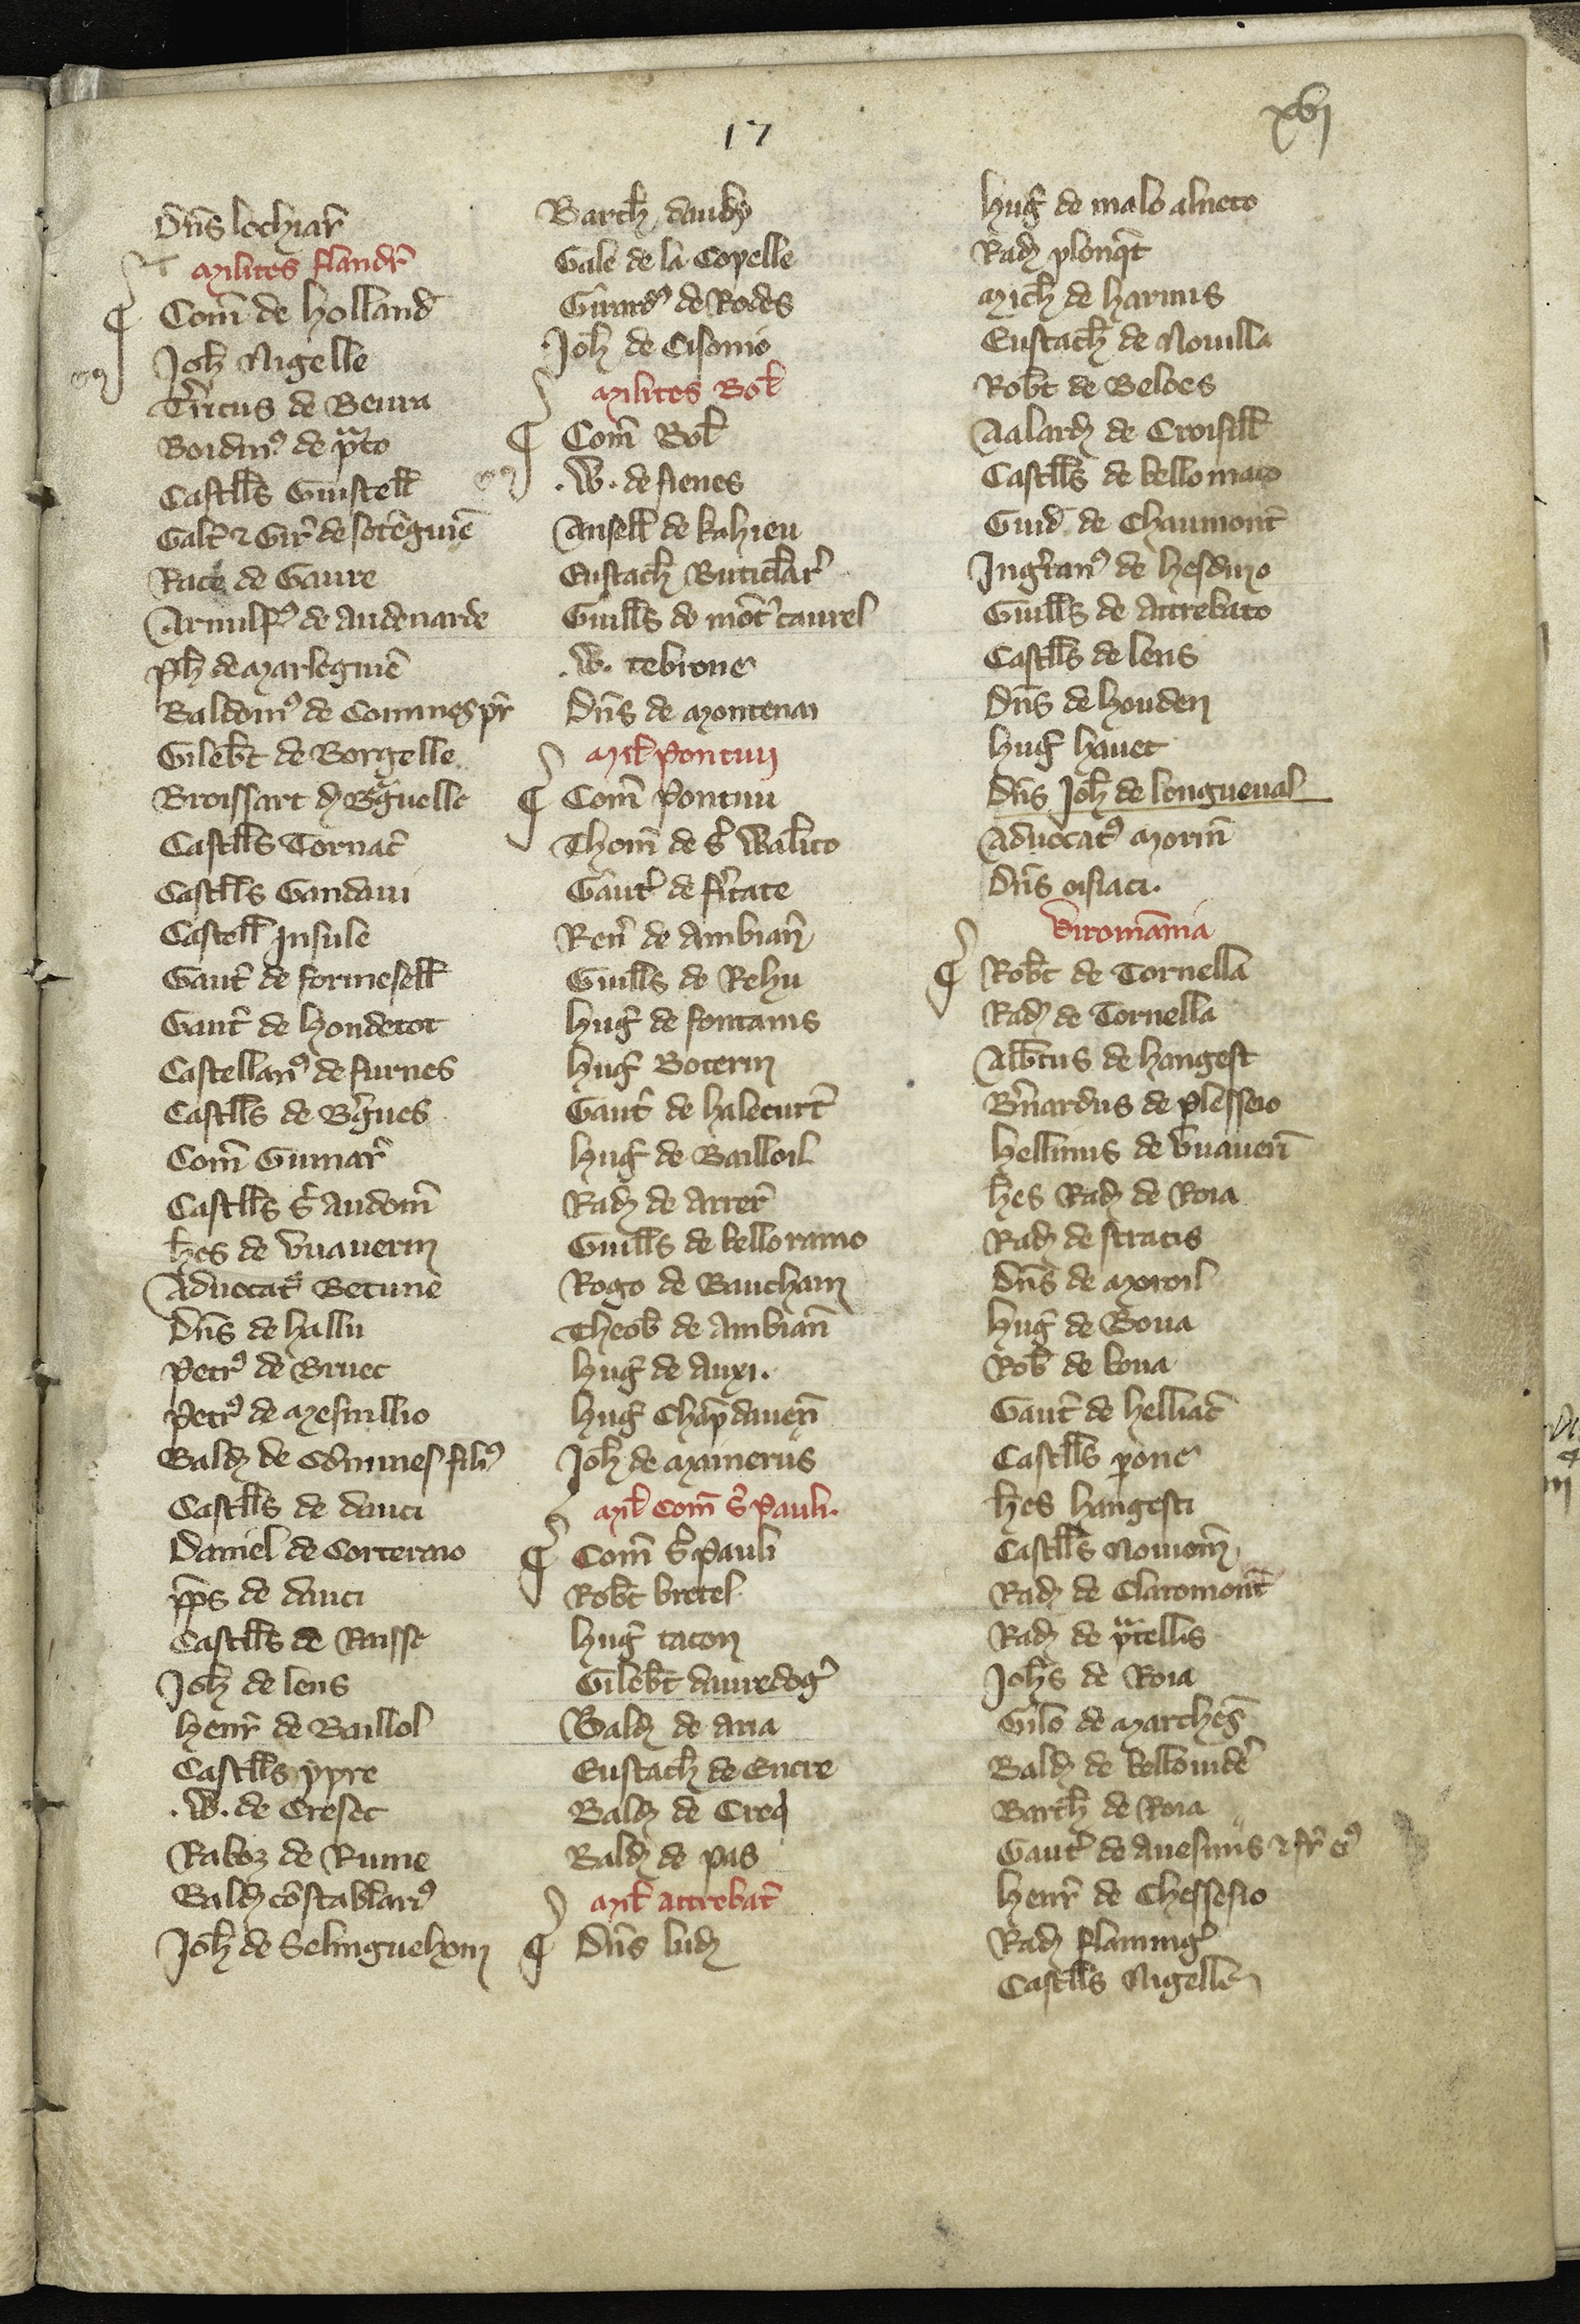 17
xvj
Dñs lochiar̄
Milites flandr̄
Com̄ de Holland
Joh̄ Nigelle
Tr̄ricus de Beura
Boidinꝰ de pᵃto
Castll̄s Guistell̄
Galt̄ ⁊ Gir̄ de sotēguiē
Race de Gaure
Arnulfꝰ de Audenarde
Ph̄ de Marleguiē
Baldoinꝰ de Commes pr̄
Gileb̄t de Borgelle
Broissart d̄ Bᵃguelle
Castll̄s Tornac̄
Castll̄s Gandaui
Castell̄ Insule
Gaut̄ de formesell̄
Gaut̄ de Hondetot
Castellanꝰ de furnes
Castll̄s de B̄gues
Com̄ Guinar̄
Castll̄s S̄ Audom̄
h̄es de Vuauerin
Aduocatꝰ Betune
Dñs de hallu
Petrꝰ de Bruec
Petrꝰ de Mesnillio
Bald̄ de Commes filiꝰ
Castll̄s de duaci
Daniel de Corteraio
pp̄s de duaci
Castll̄s de Raisse
Joh̄ de lens
Henr̄ de Baillol
Castll̄s ypre
.W. de Cresec
Raboz de Rume
Bald̄ cōstablarꝰ
Joh̄ de Selinguehem
Barth̄ dauby
Gale de la Copelle
Girardꝰ de Rodes
Joh̄ de Cisonio
Milites Bol̄
Com̄ Bol̄
.W. de fienes
Ansell̄ de kahieu
Eustach̄ Buticlar̄
Guill̄s de mōt caurel
.W. tebrone
Dñs de Montenai
Mil̄ Pontiui
Com̄ Pontiui
Thom̄ de S̄ Walico
Gaut̄ de fr̄tate
Ren̄ de Ambian̄
Guill̄s de Rehu
Hug̃ de fontanis
Hug̃ Boterin
Gaut̄ de halecurt̄
Hug̃ de Bailloil
Rad̄ de Arrer̄
Guill̄s de belloramo
Rogo de Baucham
Theob̄ de Ambian̄
Hug̃ de Auxi.
Hug̃ Chāp dauen̄
Joh̄ de Mainerus
Mil̄ Com̄ S̄ Pauli.
Com̄ S̄ Pauli
Rob̄t bretel
Hug̃ tacon
Gileb̄t dauredog̃
Bald̄ de aria
Eustach̄ de Encre
Bald̄ de Creq
Bald̄ de pas
Mil̄ attrebat̄
Dñs lud̄
Hug̃ de malo alneto
Rad̄ plonq̄t
Mich̄ de harnis
Eustach̄ de Nouilla
Rob̄t de Beloes
Aalard̄ de Croisill̄
Castll̄s de bellomaco
Guid̄ de Chaumont̄
Ingr̄anꝰ de hesdino
Guill̄s de Attrebato
Castll̄s de lens
Dñs de houden
Hug̃ hauet
Dñs Joh̄ de longueual
Aduocatꝰ Morin̄
Dñs oisiaci.
Viromānia
Rob̄t de Tornella
Rad̄ de Tornella
Alb̄tus de hangest
B̄nardus de plesseio
Hellinus de Vuauerī
h̄es Rad̄ de Roia
Rad̄ de stratis
Dñs de Moroil
Hug̃ de Boua
Rob̄ de boua
Gaut̄ de helliac̄
Castll̄s perone
h̄es hangesti
Castll̄s Nouiom̄
Rad̄ de Claromont̄
Rad̄ de pᵃtellis
Joh̄s de Roia
Gilo de Marches̄
Bald̄ de bellouider̄
Barth̄ de Roia
Gaut̄ de auesnis ⁊ fr̄ eiꝰ
Henr̄ de Chessesio
Rad̄ flaming̃
Castll̄s Nigelleñ